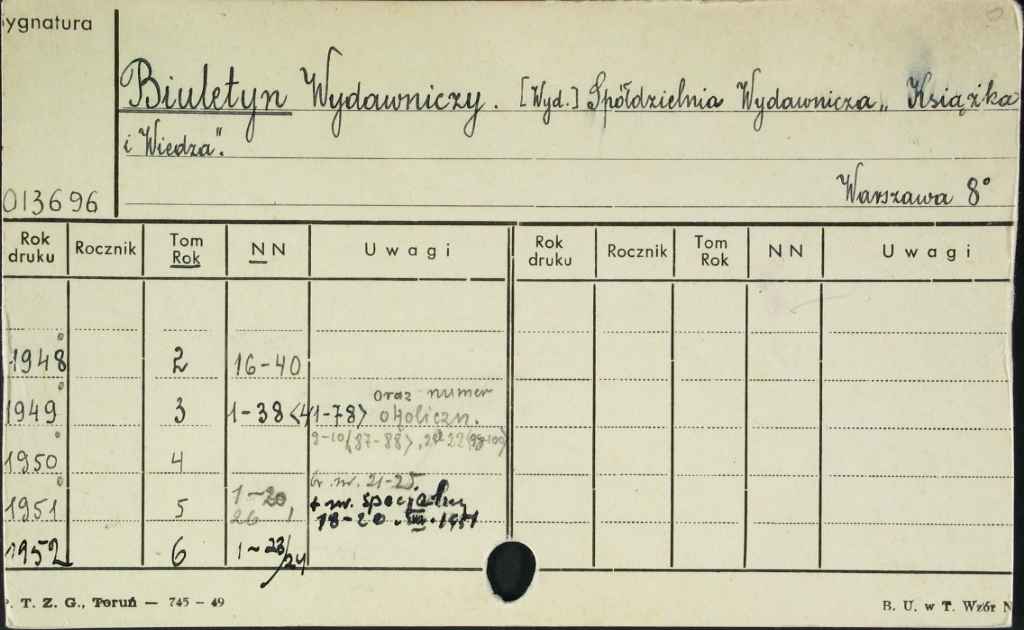 ygnatura
Biuletyn Wydawniczy. [Wyd.] Spółdzielnia Wydawnicza „Książka
i Wiedza".
013696 Warszawa 8°
Rok druku Rocznik Tom Rok NN Uwagi Rok druku Rocznik Tom Rok NN Uwagi
1948 2 16-40
oraz numer
1949 3 1-38 <41-78> okoliczn.
9-10 <87-88>
1950 4
br. nr. 21-25.
1951 5 1-20 + nr. specjalny
26 18-20. VIII. 1951
1952 6 1-23/24
. T. Z. G., Toruń — 745 - 49 B. U. w T. Wzór N